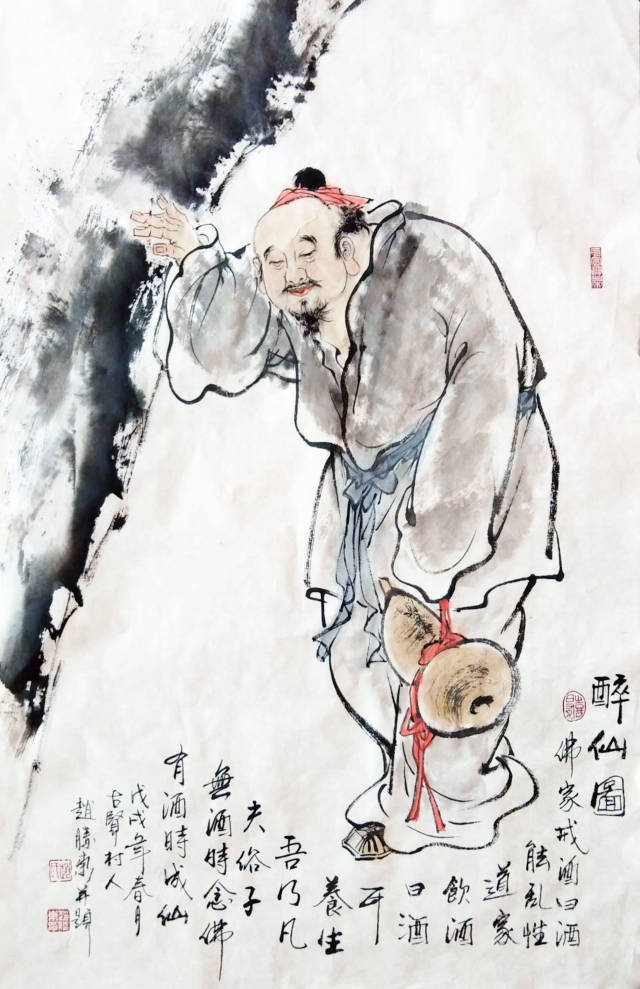 醉仙圖
佛家戒酒曰酒
能乱性
道家
飲酒
曰酒
可
養性
吾乃凡
夫俗子
無酒時念佛
有酒時成仙
戊戌年春月
古賢村人
趙勝并題